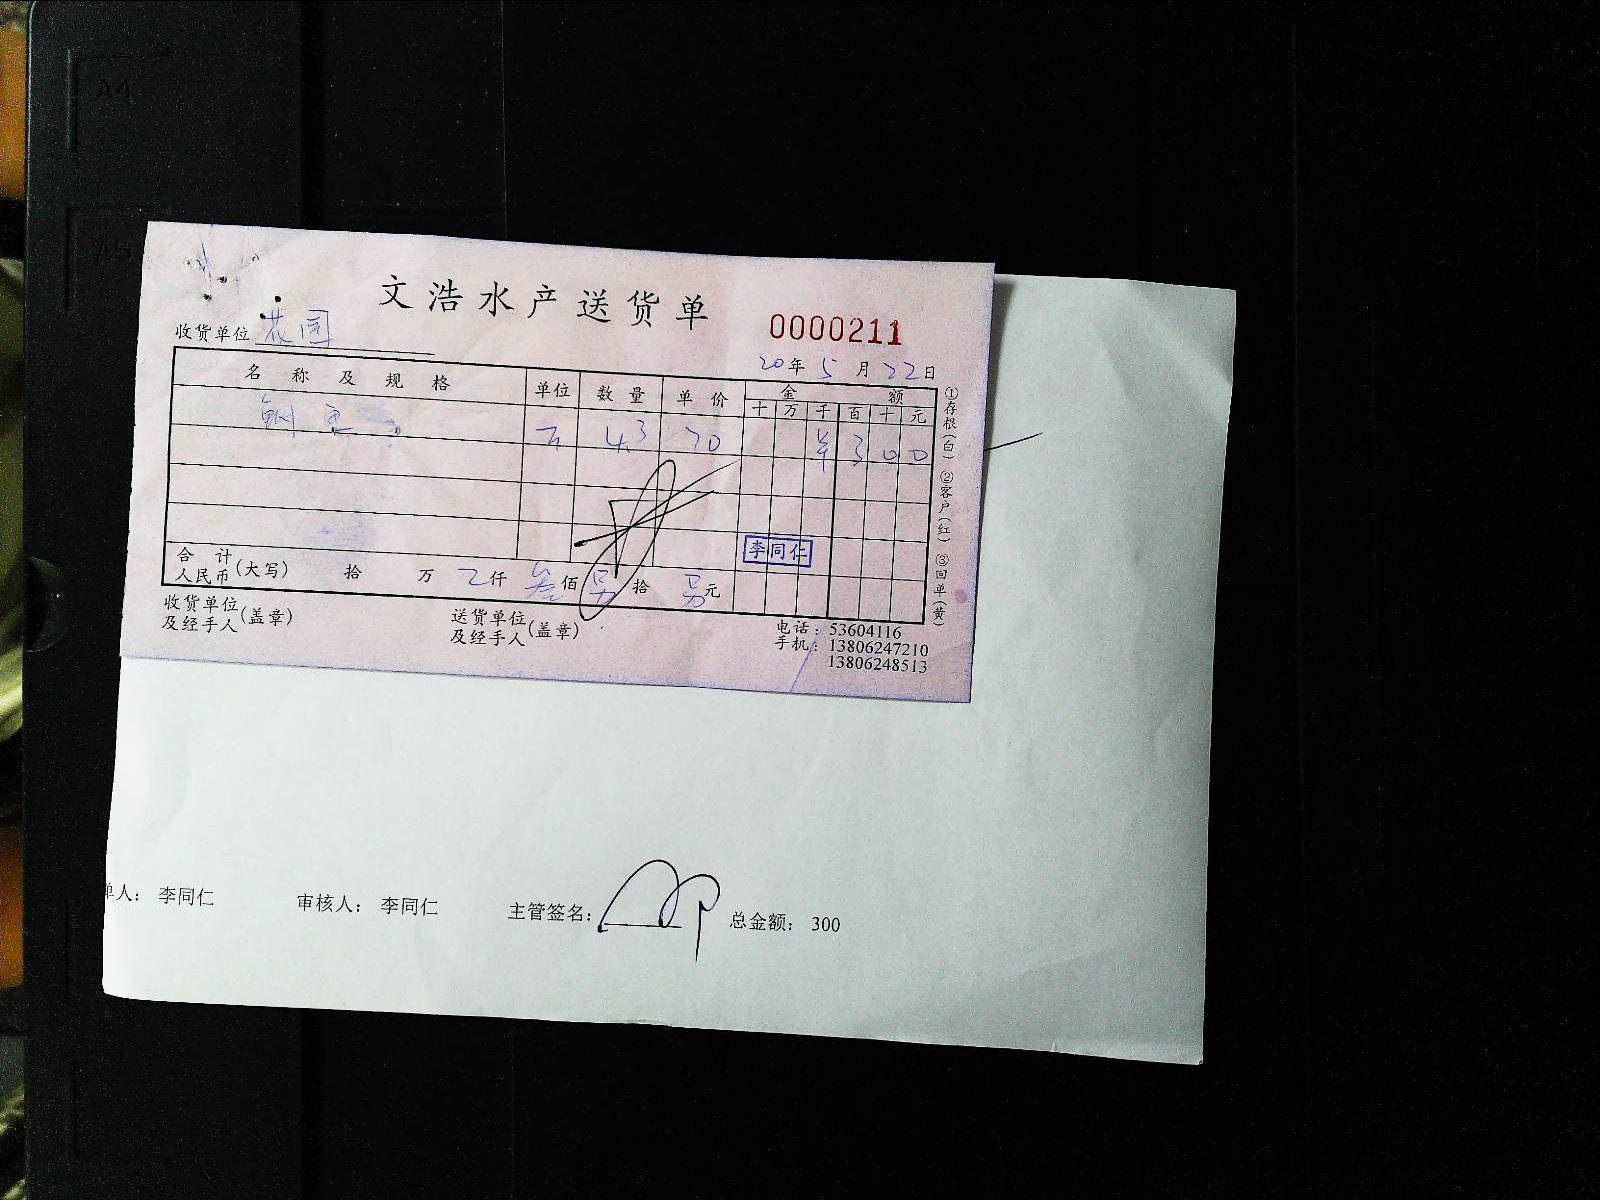 文浩水产送货单
0000211
收货单位 花园
20年5月22日
名称及规格 单位 数量 单价 金额
十 万 千 百 十 元
鱼 4.3 70 ¥ 3 0 0
李同仁
合计
人民币(大写) 拾 万 仟 叁佰 另拾 另元
收货单位
及经手人(盖章)
送货单位
及经手人(盖章)
电话:53604116
手机:13806247210
13806248513
①存根(白) ②客户(红) ③回单(黄)
单人: 李同仁 审核人: 李同仁 主管签名: 总金额: 300
A4